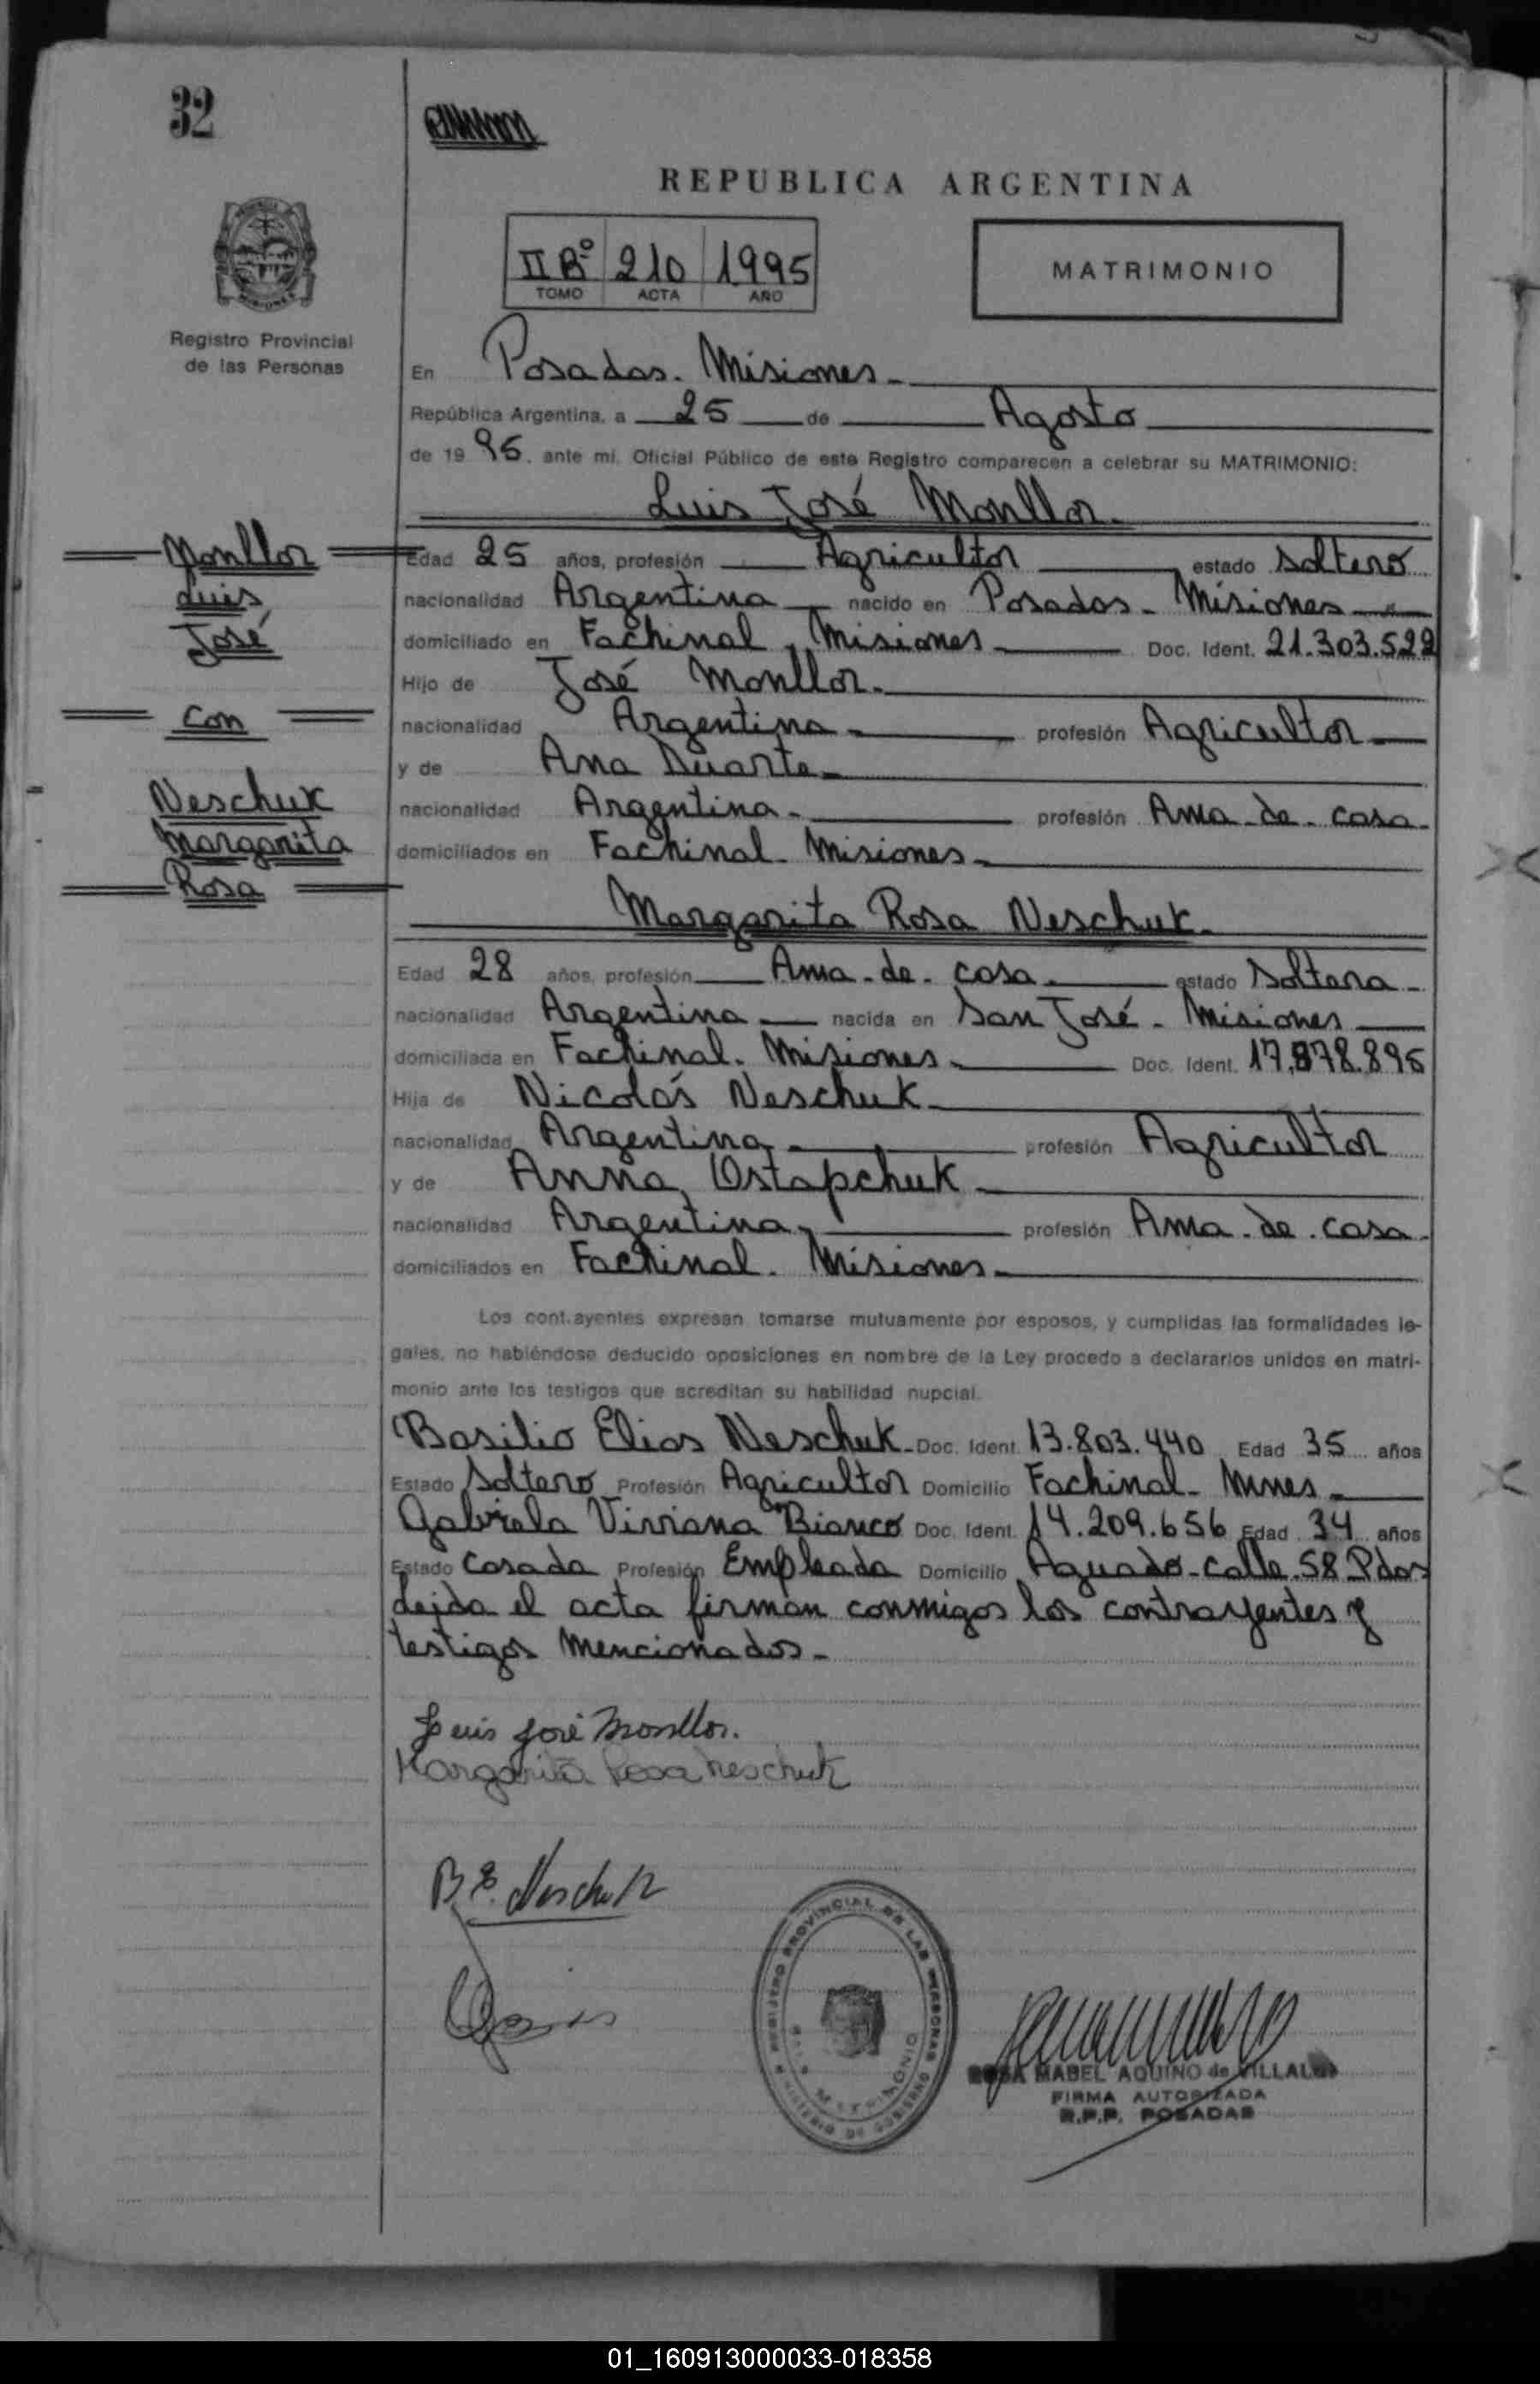 32
REPUBLICA ARGENTINA
II Bº 210 1995
TOMO ACTA AÑO
MATRIMONIO
Registro Provincial
de las Personas
En Posadas. Misiones
República Argentina, a 25 de Agosto
de 1995. ante mi. Oficial Público de este Registro comparecen a celebrar su MATRIMONIO:
Luis José Monllor.
Monllor
Luis
José
con
Neschuk
Margarita
Rosa
Edad 25 años, profesión Agricultor estado Soltero
nacionalidad Argentina nacido en Posadas - Misiones
domiciliado en Fachinal, Misiones Doc. Ident. 21.303.522
Hijo de José Monllor.
nacionalidad Argentina profesión Agricultor
y de Ana Duarte
nacionalidad Argentina profesión Ama de casa
domiciliados en Fachinal. Misiones
Margarita Rosa Neschuk
Edad 28 años, profesión Ama de casa estado Soltera
nacionalidad Argentina nacida en San José - Misiones
domiciliada en Fachinal. Misiones Doc. Ident. 17.878.895
Hija de Nicolás Neschuk
nacionalidad Argentina profesión Agricultor
y de Anna Ostapchuk
nacionalidad Argentina profesión Ama de casa
domiciliados en Fachinal. Misiones
Los contrayentes expresan tomarse mutuamente por esposos, y cumplidas las formalidades le-
gales, no habiéndose deducido oposiciones en nombre de la Ley procedo a declararlos unidos en matri-
monio ante los testigos que acreditan su habilidad nupcial.
Basilio Elias Neschuk Doc. Ident. 13.803.440 Edad 35 años
Estado Soltero Profesión Agricultor Domicilio Fachinal - Mnes
Gabriela Viviana Bianco Doc. Ident. 14.209.656 Edad 34 años
Estado Casada Profesión Empleada Domicilio Aguado - calle 58 Pdas
Leida el acta firman conmigos los contrayentes y
testigos mencionados.
Luis José Monllor.
Margarita Rosa Neschuk
B. E. Neschuk
REGISTRO PROVINCIAL DE LAS PERSONAS
MINISTERIO DE GOBIERNO
MATRIMONIO
ROSA MABEL AQUINO de VILLALBA
FIRMA AUTORIZADA
R.P.P. POSADAS
01_160913000033-018358